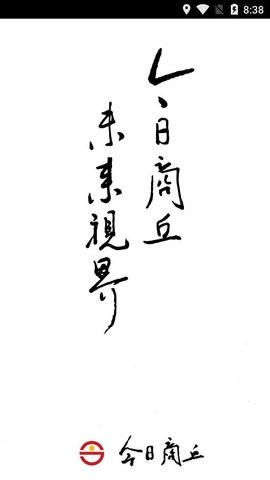 8:38
今日商丘
未来视界
今日商丘